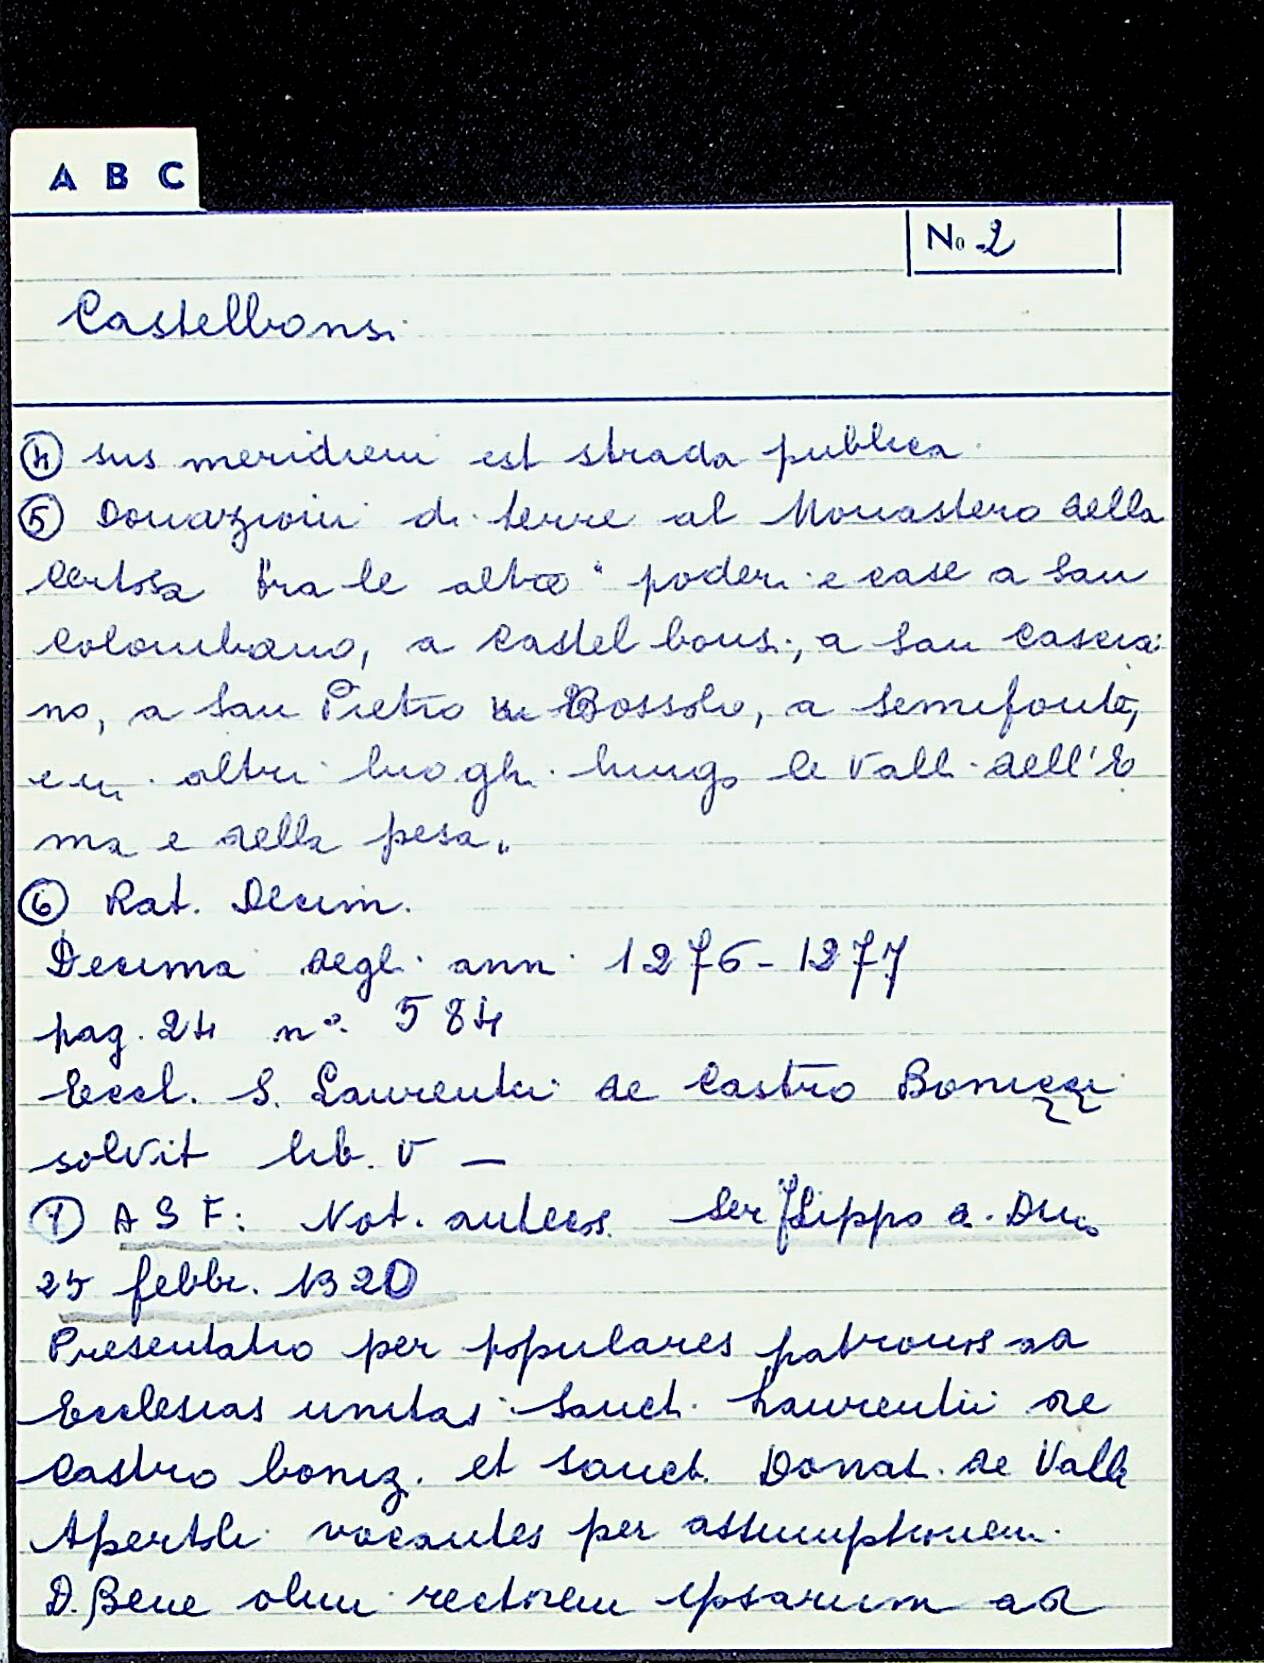 A B C
No 2
Castelbonsi
④ sus meridiem est strada publica.
⑤ Donazioni di terre al Monastero della
Certosa tra le altre "poderi e case a San
Colombano, a Castel bonsi, a San Cascia:
no, a San Pietro in Bossolo, a Semifonte,
e in altri luoghi lungo le Valli dell'E
ma e della pesa"
⑥ Rat. Decim.
Decima degli anni 1276-1277
pag. 24 n°. 584
Eccl. S. Laurentii de Castro Bonizzi
solvit lib. V —
ASF: Not. antecos. Ser Lippo
25 febbr. 1320
Presentatio per populares patronos ad
Ecclesias unitas Sancti Laurentii de
Castro boniz. et Sancti Donati de Valle
Apertoli vacantes per assumptionem
D. Bene olim rectorem ipsarum ad